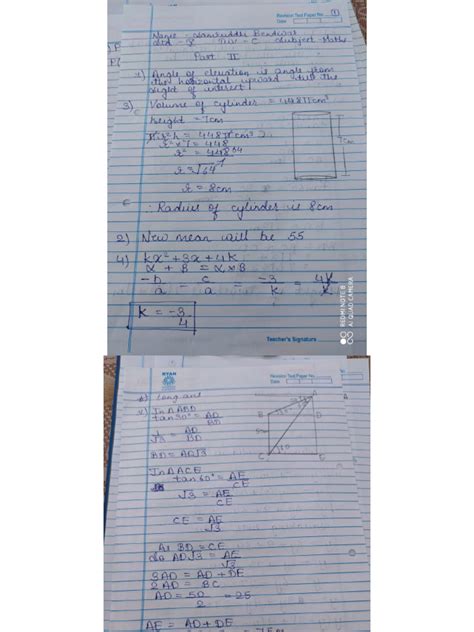 Revision Test Paper No. 1
Date
Name -
Std - Div - C Subject - Maths
Part II
1) Angle of elevation is angle from
the horizontal upward the
of interest
3) Volume of cylinder = 448πcm³
height = 7cm
πr²h = 448π
r² × 7 = 448
r² = 448 64
r = √64
r = 8cm
∴ Radius of cylinder is 8cm
7cm
2) New mean will be 55
4) kx² + 3x + 4k
α + β = α × β
-b/a = c/a = -3/k = 4k/k
k = -3/4
Teacher's Signature
REDMI NOTE 8
AI QUAD CAMERA
RYAN
Revision Test Paper No.
Date
Long ans
In Δ ABD
tan 30° = AD/BD
1/√3 = AD/BD
BD = AD√3
In Δ ACE
tan 60° = AE/CE
√3 = AE/CE
CE = AE/√3
As BD = CE
So AD√3 = AE/√3
3AD = AD + DE
2AD = BC
AD = 50/2 = 25
AE = AD + DE
A
B
D
C